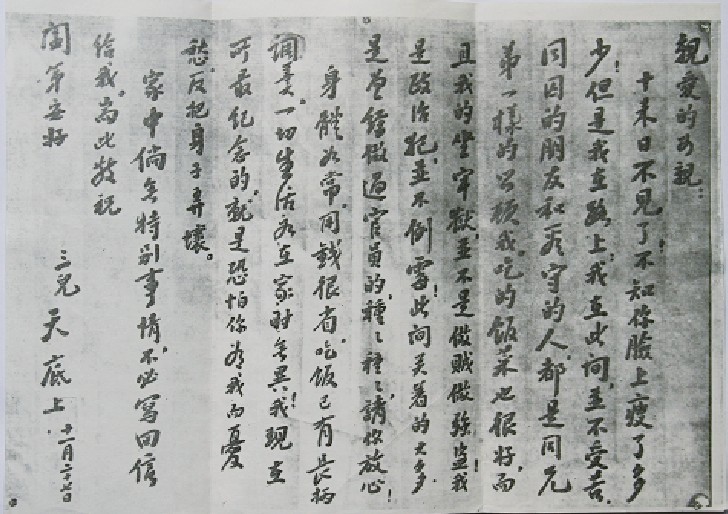 親愛的母親：
十来日不見了！不知你臉上瘦了多
少！但是我在路上，我在此间，並不受苦，
同囚的朋友和看守的人，都是同兄
弟一樣的照顾我。吃的飯菜也很好，而
且我的坐牢獄，並不是做贼做强盗！我
是政治犯，並不倒霉！此间关着的大多
是曾經做過官員的，種々種々，請你放心！
身體如常，用錢很省，吃飯已有長柄
調羹。一切生活如在家时無異！我現在
可最紀念的，就是恐怕你为我而憂
愁，反把身子弄壞。
家中倘無特别事情，不必寫回信
给我。耑此敬祝
阖第安好
三兒 天底上 十一月